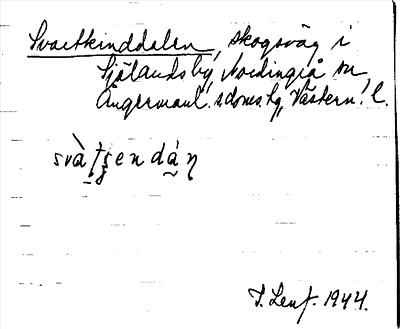 Svartkinddalen, skogsväg i
Själands by, Nordingrå sn,
Ångermanl. s. doms. hg, Västern. l.
svàṭʂendáṇ
T. Lenf. 1944.